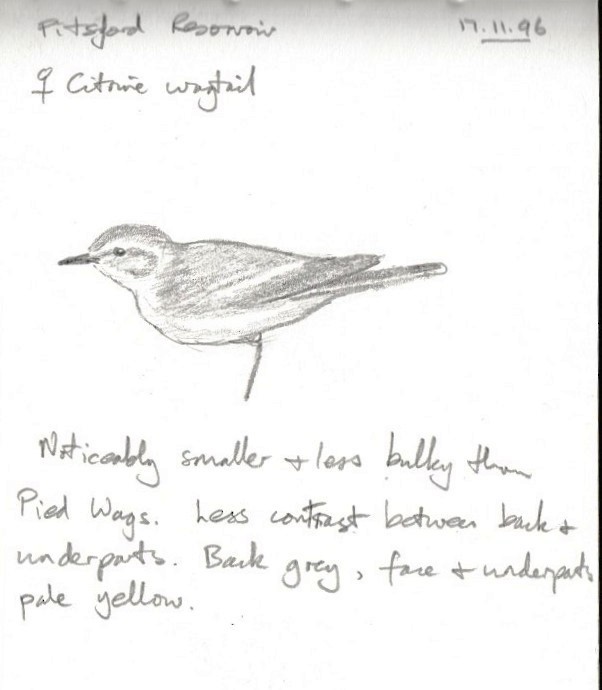 Pitsford Reservoir 17.11.96
♀ Citrine wagtail
Noticeably smaller + less bulky than
Pied Wags. Less contrast between back +
underparts. Back grey, face + underparts
pale yellow.